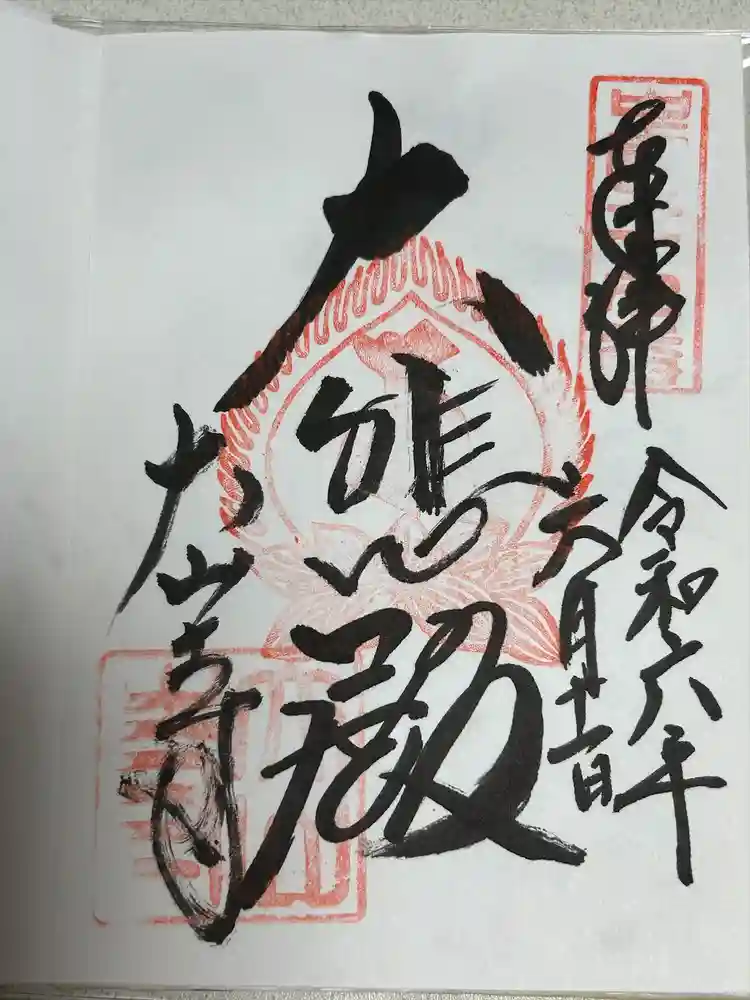 奉拝
令和六年
六月廿一日
大悲殿
大山寺